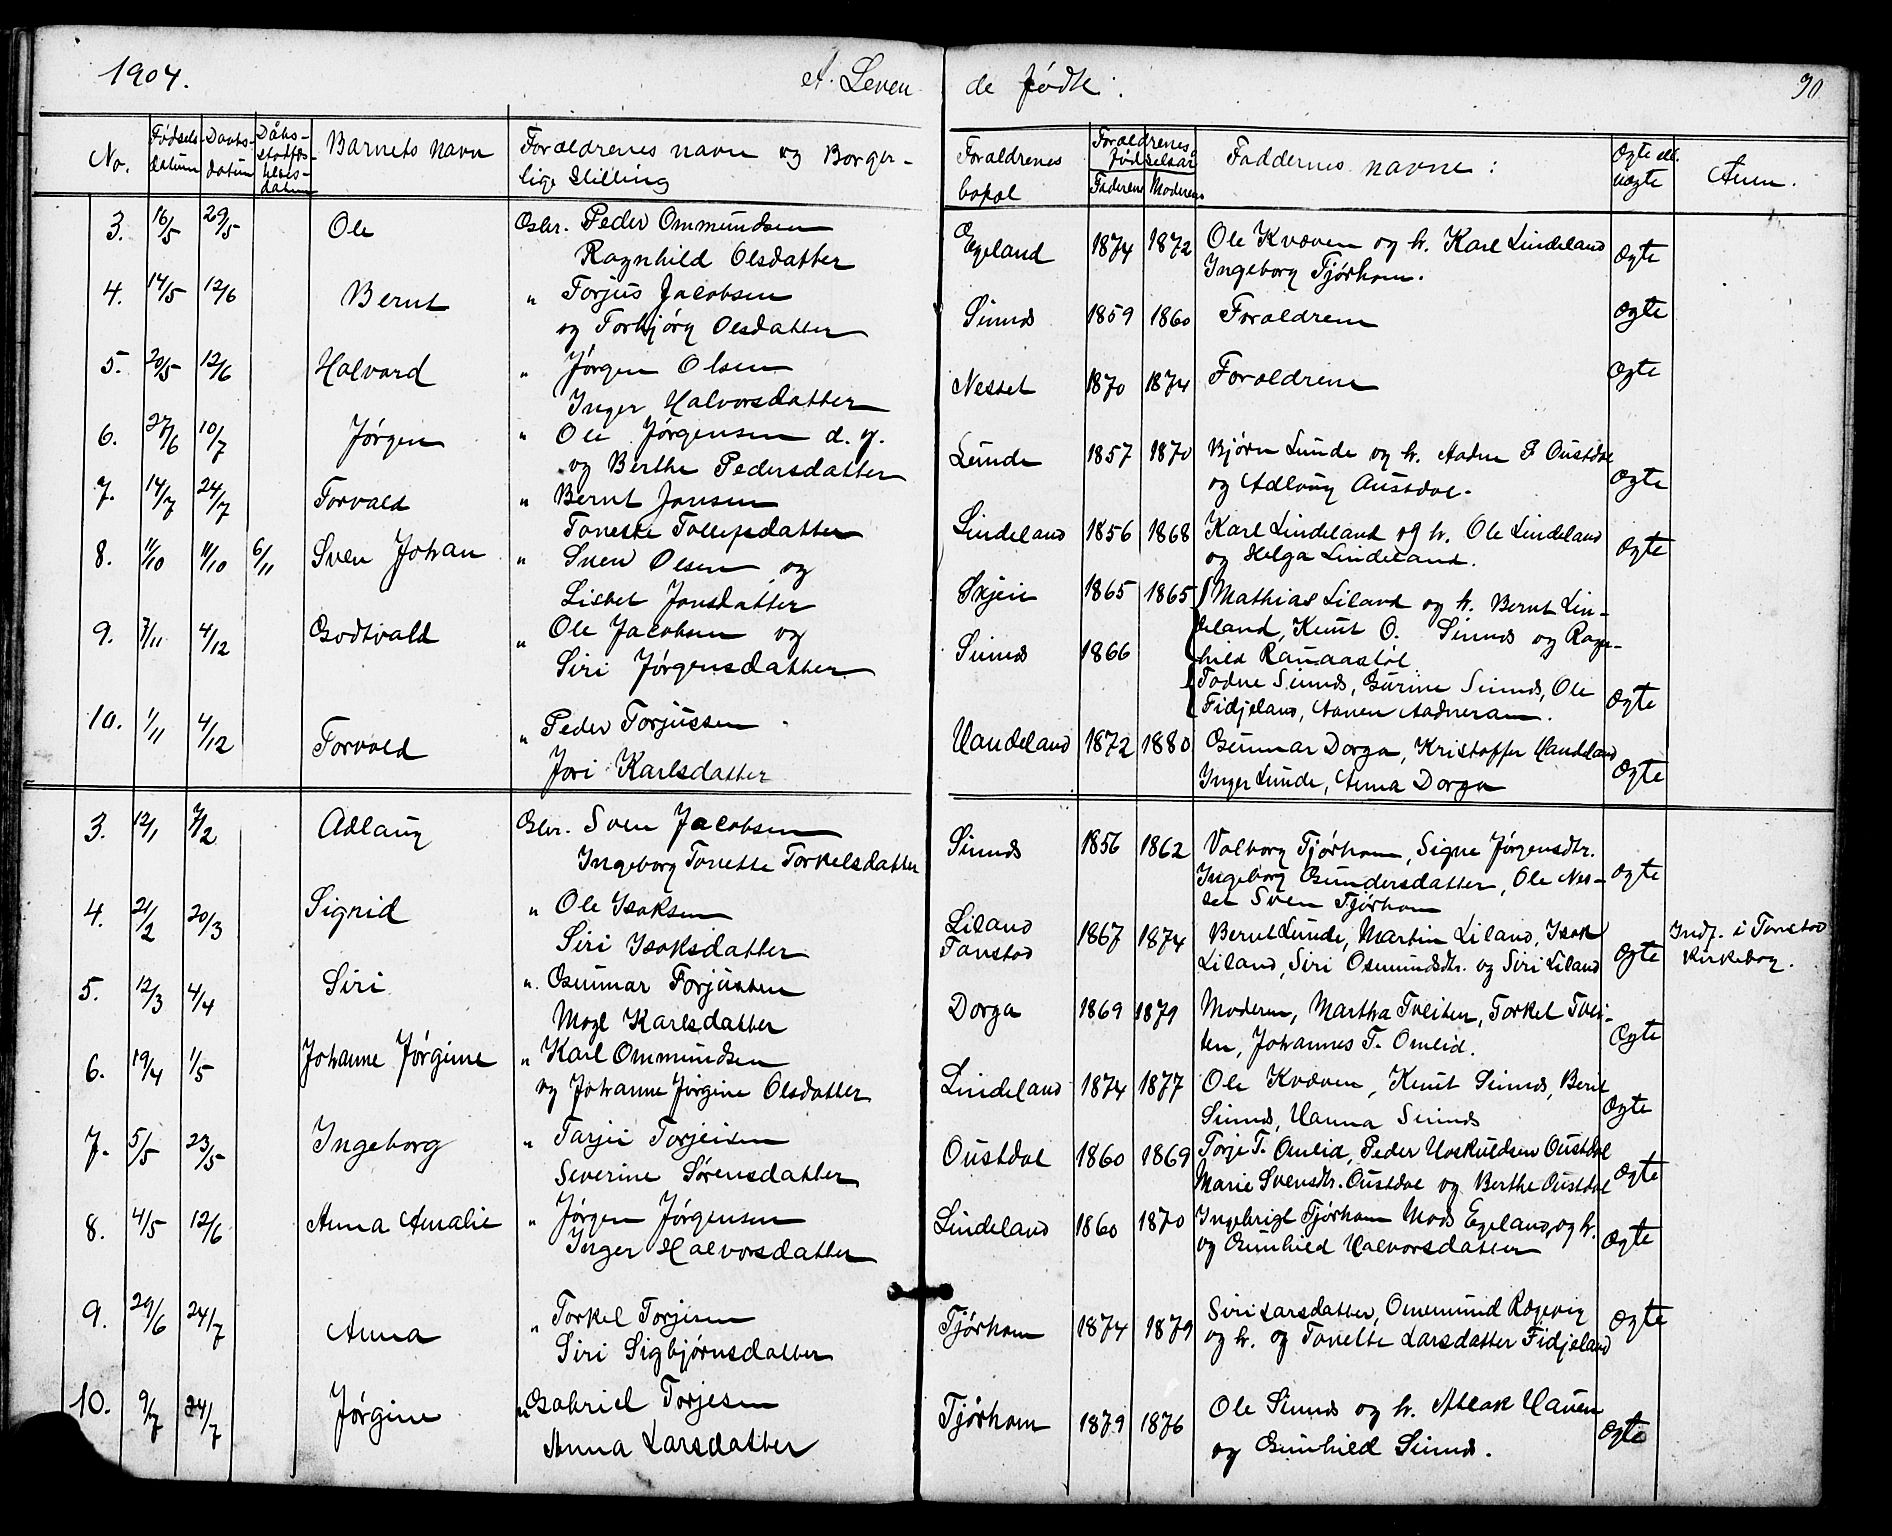 1904.
A. Leven
de fødte.
90
No.
Fødsels-
datum
Daabs-
datum
Dåbs-
stadfæs-
telses-
datum
Barnets navn
Forældrenes navn og Borger-
lige Stilling
Forældrenes
bopæl
Forældrenes
fødselsår
Faderens
Moderens
Faddernes navne:
Ægte ell.
uægte
Anm.
3. 16/5 29/5 Ole Gbr. Peder Ommundsen Egeland 1874 1872 Ole Kvæven og h. Karl Lindeland Ægte
Ragnhild Olsdatter Ingeborg Tjørhom.
4. 14/5 12/6 Bernt " Torjus Jacobsen Sinnes 1859 1860 Forældrene Ægte
og Torbjørg Olsdatter
5. 20/5 12/6 Halvard " Jørgen Olsen Nesset 1870 1874 Forældrene Ægte
Inger Halvorsdatter
6. 27/6 10/7 Jørgen " Ole Jørgensen d. y. Lunde 1857 1870 Bjørn Lunde og h. Aadne P Oustdal
og Berthe Pedersdatter og Adlaug Austdal. Ægte
7. 14/7 24/7 Torvald " Bernt Jansen Lindeland 1856 1868 Karl Lindeland og h. Ole Lindeland
Tonette Tollefsdatter og Helga Lindeland. Ægte
8. 11/10 11/10 6/11 Sven Johan " Sven Olsen og Skjeie 1865 1865 Mathias Liland og h. Bernt Lin-
Lisbet Jonsdatter deland, Knut O. Sinnes og Ragn-
hild Randastøl
9. 7/11 4/12 Godtvald " Ole Jacobsen og Sinnes 1866 Tadne Sinnes, Gurine Sinnes, Ole
Siri Jørgensdatter Fidjeland, Aanen Aadneram. Ægte
10. 1/11 4/12 Torvald " Peder Torjussen Haudeland 1872 1880 Gunnar Dorga, Kristoffer Haudeland
Jori Karlsdatter Inger Lunde, Anna Dorga Ægte
3. 12/1 7/2 Adlaug Gbr. Sven Jacobsen Sinnes 1856 1862 Valborg Tjørhom, Signe Jørgensdtr.
Ingeborg Tonette Torkelsdatter Ingebörg Gundersdatter, Ole Nes- Ægte
set Sven Tjørhom
4. 21/2 20/3 Sigrid " Ole Isaksen Liland 1867 1874 Bernt Lunde, Martin Liland, Isak Indf. i Tonstad
Siri Isaksdatter Tonstad Liland, Siri Osmundsdtr. og Siri Liland Ægte Kirkebog.
5. 12/3 4/4 Siri " Gunnar Torjussen Dorga 1869 1879 Moderen, Martha Tveiten, Torkel Tvei-
Magl Karlsdatter ten, Johannes T. Omlid. Ægte
6. 19/4 1/5 Johanne Jørgine " Karl Ommundsen Lindeland 1874 1877 Ole Kvæven, Knut Sinnes, Berit
og Johanne Jørgine Olsdatter Sinnes, Hanna Sinnes Ægte
7. 5/5 23/5 Ingeborg " Tarjei Torjeisen Oustdal 1860 1869 Torje T. Omlid, Peder Hoskuldsen Oustdal
Severine Sørensdatter Marie Svensdtr. Oustdal og Berthe Oustdal Ægte
8. 4/5 12/6 Anna Amalie " Jørgen Jørgensen Lindeland 1860 1870 Ingebrigt Tjørhom Mads Egeland og h.
Inger Halvorsdatter og Gunhild Halvorsdatter Ægte
9. 29/6 24/7 Anna " Torkel Torjesen Tjørhom 1874 1879 Siri Larsdatter, Ommund Rægevig Ægte
Siri Sigbjørnsdatter og h. og Tonette Larsdatter Fidjeland
10. 9/7 24/7 Jørgine " Gabriel Torjesen Tjørhom 1879 1876 Ole Sinnes og h. Atlak Haven
Anna Larsdatter og Gunhild Sinnes. Ægte